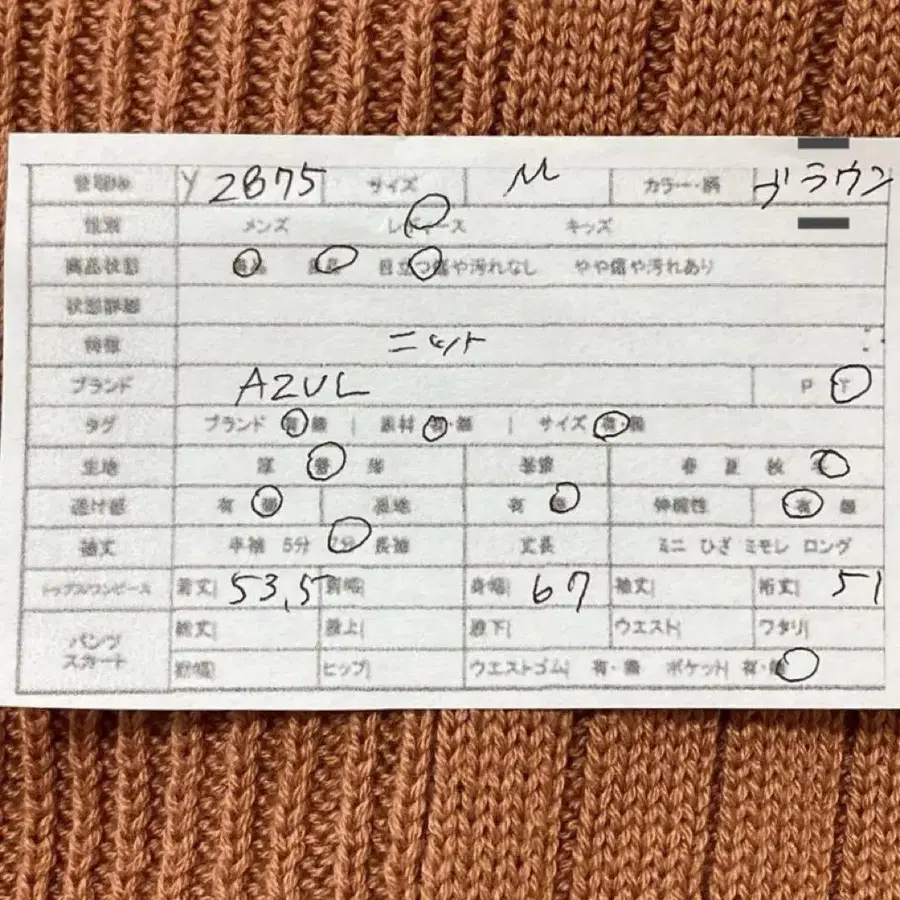 管理No Y 2875 サイズ M カラー・柄 ブラウン
性別 メンズ レディース キッズ
商品状態 目立つ傷や汚れなし やや傷や汚れあり
状態詳細
ニット
ブランド AZUL P T
タグ ブランド 有・無 | 素材 有・無 | サイズ 有・無
生地 厚 普 薄 季節 春 夏 秋 冬
透け感 有 無 裏地 有 無 伸縮性 有 無
袖丈 半袖 5分 7分 長袖 丈長 ミニ ひざ ミモレ ロング
トップス/ワンピース 着丈| 53,5 肩幅| 身幅| 67 袖丈| 裄丈| 51
パンツ スカート 総丈| 股上| 股下| ウエスト| ワタリ|
裾幅| ヒップ| ウエストゴム| 有・無 ポケット| 有・無